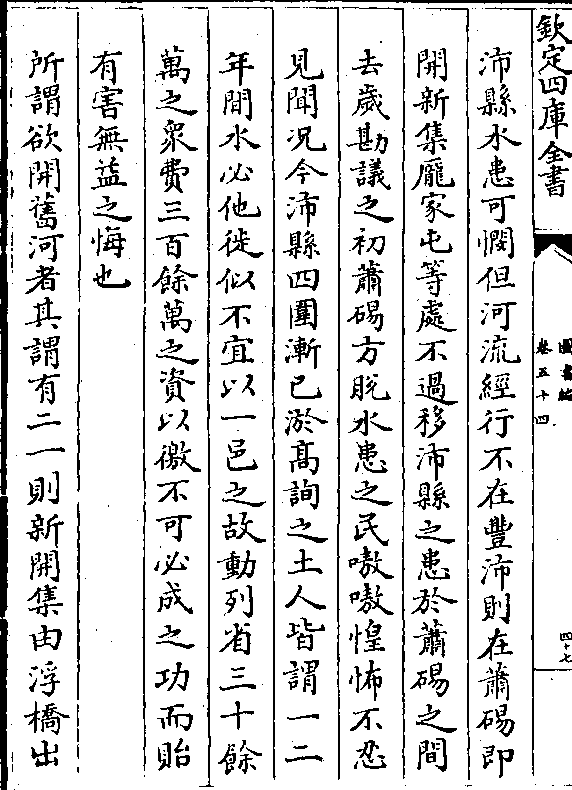 欽定四庫全書
圖書編
卷五十四
四十七
沛縣水患可憫但河流經行不在豐沛則在蕭碭即
開新集龐家屯等處不過移沛縣之患於蕭碭之間
去歲勘議之初蕭碭方脫水患之民嗷嗷惶怖不忍
見聞况今沛縣四圍漸已淤髙詢之土人皆謂一二
年間水必他徙似不宜以一邑之故動列省三十餘
萬之衆費三百餘萬之資以徼不可必成之功而貽
有害無益之悔也
所謂欲開舊河者其謂有二一則新開集由浮橋出